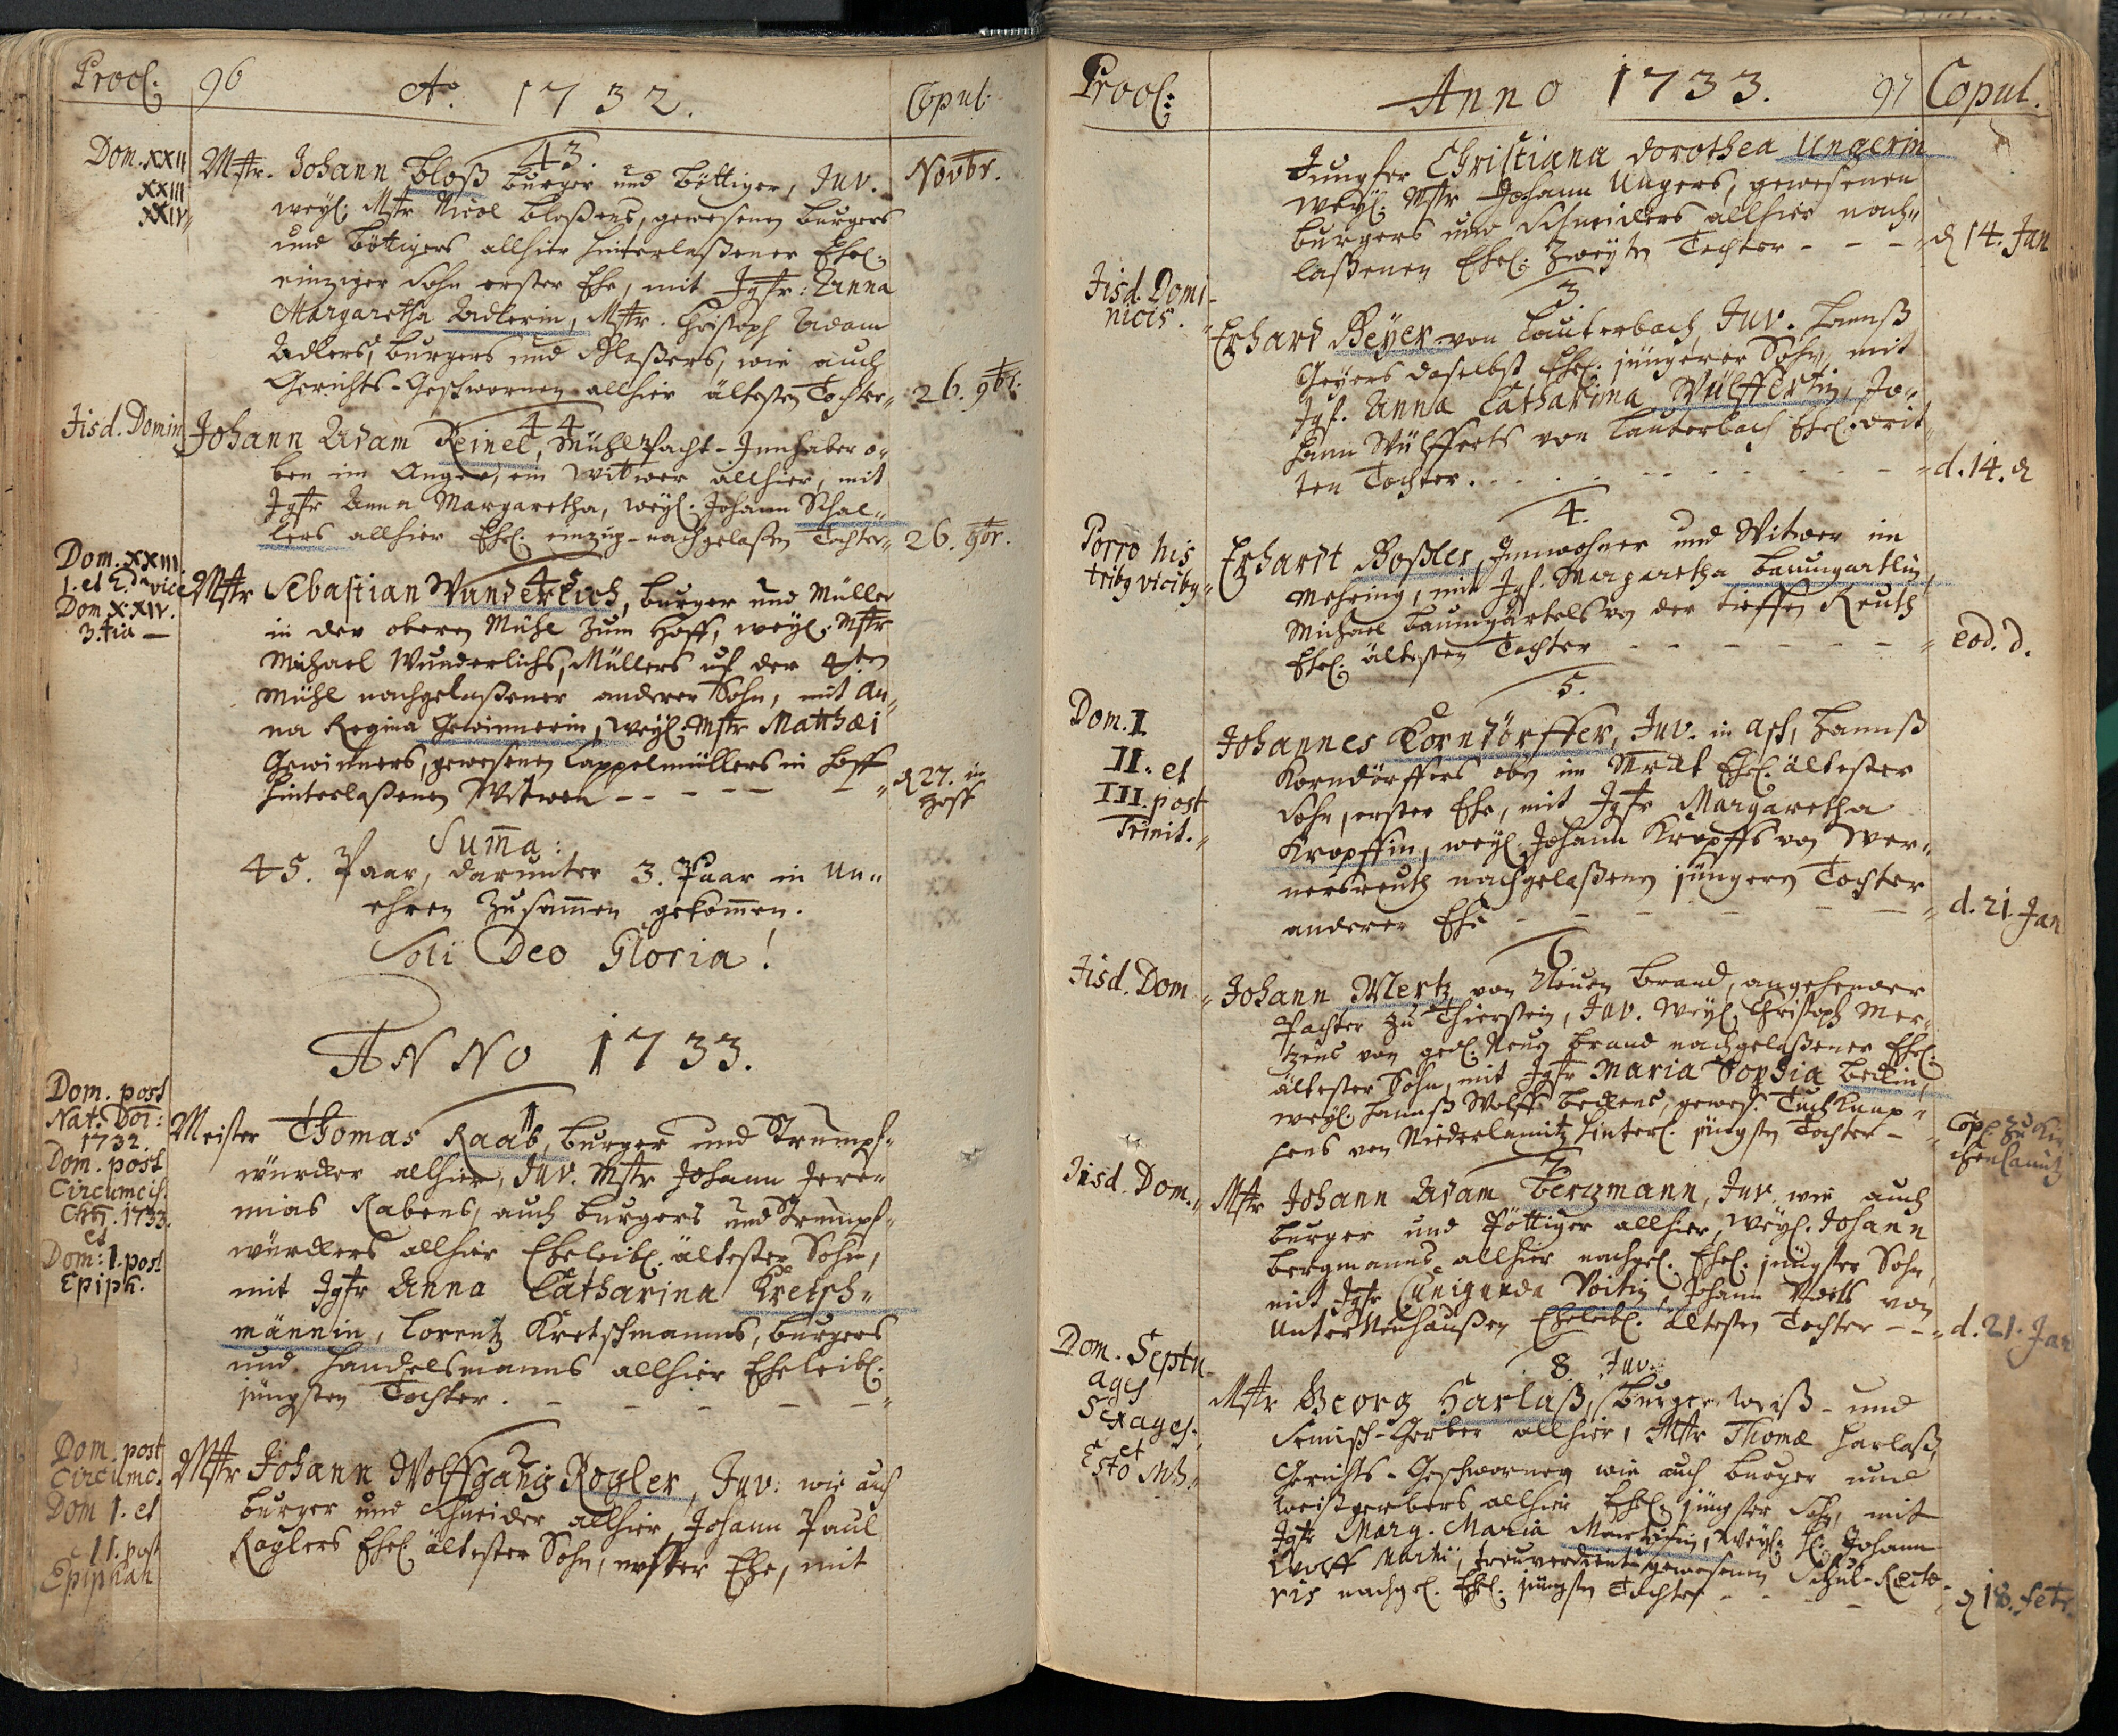 Procl: 96 Ao. 1732. Copul:
43.
Dom. XXII
XXIII
XXIV
Mstr. Johann Bloß Burger und Böttiger, Juv. Novbr.
weyl: Mstr Nicol Bloßens, gewesenen Burgers
und Böttigers allhier hinterlaßener Ehel:
einziger Sohn erster Ehe, mit Jgfr: Anna
Margaretha Adlerin, Mstr. Christoph Adam
Adlers, Burgers und Schloßers, wie auch
Gerichts-Geschwornen allhier ältesten Tochter 26. 9br:
44
Iisd. Domin.
Johann Adam Reinel, Mühl Pacht-Innhaber o-
ben im Anger, ein Wittwer allhier, mit
Jgfr Anna Margaretha, weyl. Johann Schal-
lers allhier Ehel. einzig-nachgelaßen Tochter 26. 9br.
45
Dom. XXIII.
1. et 2.da vice
Dom XXIV.
3.tia —
Mstr Sebastian Wunderlich, Burger und Müller
in der obern Mühl zum Hoff, weyl. Mstr
Michael Wunderlichs, Müllers uf der 4ten
Mühl nachgelaßener anderer Sohn, mit An-
na Regina Gewinnerin, weyl. Mstr Matthæi
Gewinners, gewesenen Cappelmüllers in Hoff
hinterlaßenen Witwen d 27. in
Hoff
Suma:
45. Paar, darunter 3. Paar in Un-
ehren zusamen gekomen.
Soli Deo Gloria!
ANNO 1733.
1
Dom. post
Nat. Dni:
1732.
Dom. post
Circumcis.
Chri. 1733.
et
Dom: 1. post
Epiph.
Meister Thomas Raab, Burger und Strumpf-
würcker allhier, Juv. Mstr Johann Jere-
mias Rabens, auch Burgers und Strumpf-
würckers allhier Eheleibl. ältester Sohn,
mit Jgfr Anna Catharina Kretsch-
männin, Lorentz Kretschmanns, Burgers
und Handelsmanns allhier Eheleibl.
jüngsten Tochter.
2
Dom. post
Circumc.
Dom 1. et
11. post
Epiphan
Mstr Johann Wolffgang Rogler, Juv: wie auch
Burger und Schneider allhier, Johann Paul
Roglers Ehel. ältester Sohn, erster Ehe, mit
Procl: Anno 1733. 97 Copul.
Jungfer Christiana Dorothea Ungerin
weyl. Mstr Johann Ungers, gewesenen
Burgers und Schneiders allhier nach-
laßenen Ehel: zweyten Tochter d 14. Jan
3.
Iisd. Domi-
nicis.
Erhard Beyer von Lauterbach, Juv. Hannß
Beyers daselbst Ehel. jüngerer Sohn, mit
Jgf. Anna Catharina Wülffertin, Jo-
hann Wülfferts von Lauterbach Ehel. drit-
ten Tochter. d. 14. d
4.
Porro his
tribg vicibg
Erhardt Boßler, Innwohner und Witwer im
Mehring, mit Jgf. Margaretha Baumgartlin
Michael Baumgärtels von der tieffen Reuth
Ehel. ältesten Tochter eod. d.
5.
Dom. I
II. et
III. post
Trinit.
Johannes Korndörffer, Juv. in Asch, Hannß
Korndörffers obn im Markt Ehel. ältester
Sohn, erster Ehe, mit Jgfr Margaretha
Kropffin, weyl. Johann Kropffs von Wer-
nersreuth nachgelaßenen jüngern Tochter
anderer Ehe d. 21. Jan
6
Iisd. Dom
Johann Mertz von Neuen Brand, angehender
Pachter zu Thierstein, Juv. weyl. Christoph Mer-
tzens von ged. Neuen Brand nachgelaßener Ehel.
ältester Sohn, mit Jgfr Maria Sophia Beckin
weyl. Hannß Wolff Beckens, gewes. Tuchknap-
pens von Niederlamitz hinterl. jüngsten Tochter Cop. zu Kir
chenlamitz
7
Iisd. Dom.
Mstr Johann Adam Bergmann, Juv. wie auch
Burger und Böttiger allhier, weyl. Johann
Bergmanns allhier nachgel. Ehel. jüngster Sohn
mit Jgfr Cunigunda Voitin, Johann Voits von
Unter Neuhaußen Eheleibl. ältesten Tochter d. 21. Jan
8. Juv.
Dom. Septu
ages
Sexages.
et
Esto Mih.
Mstr Georg Harlaß, Burger Weiß- und
Semisch-Gerber allhier, Mstr Thomæ Harlaß,
Gerichts-Geschwornen wie auch Burger und
Weißgerbers allhier Ehel. jüngster Sohn, mit
Jgfr Marg. Maria Martinin, weyl: H. Johann
Wolff Martii, treuverdient gewesenen Schul-Recto-
ris nachgel. Ehel. jüngsten Tochter d 18. Febr.